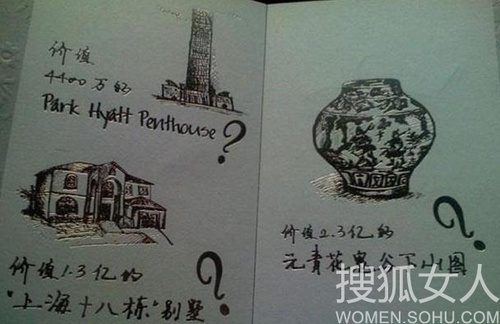 价值
4400万的
Park Hyatt Penthouse?
价值1.3亿的
"上海十八栋"别墅?
价值2.3亿的
元青花鬼谷下山图?
搜狐女人
WOMEN.SOHU.COM